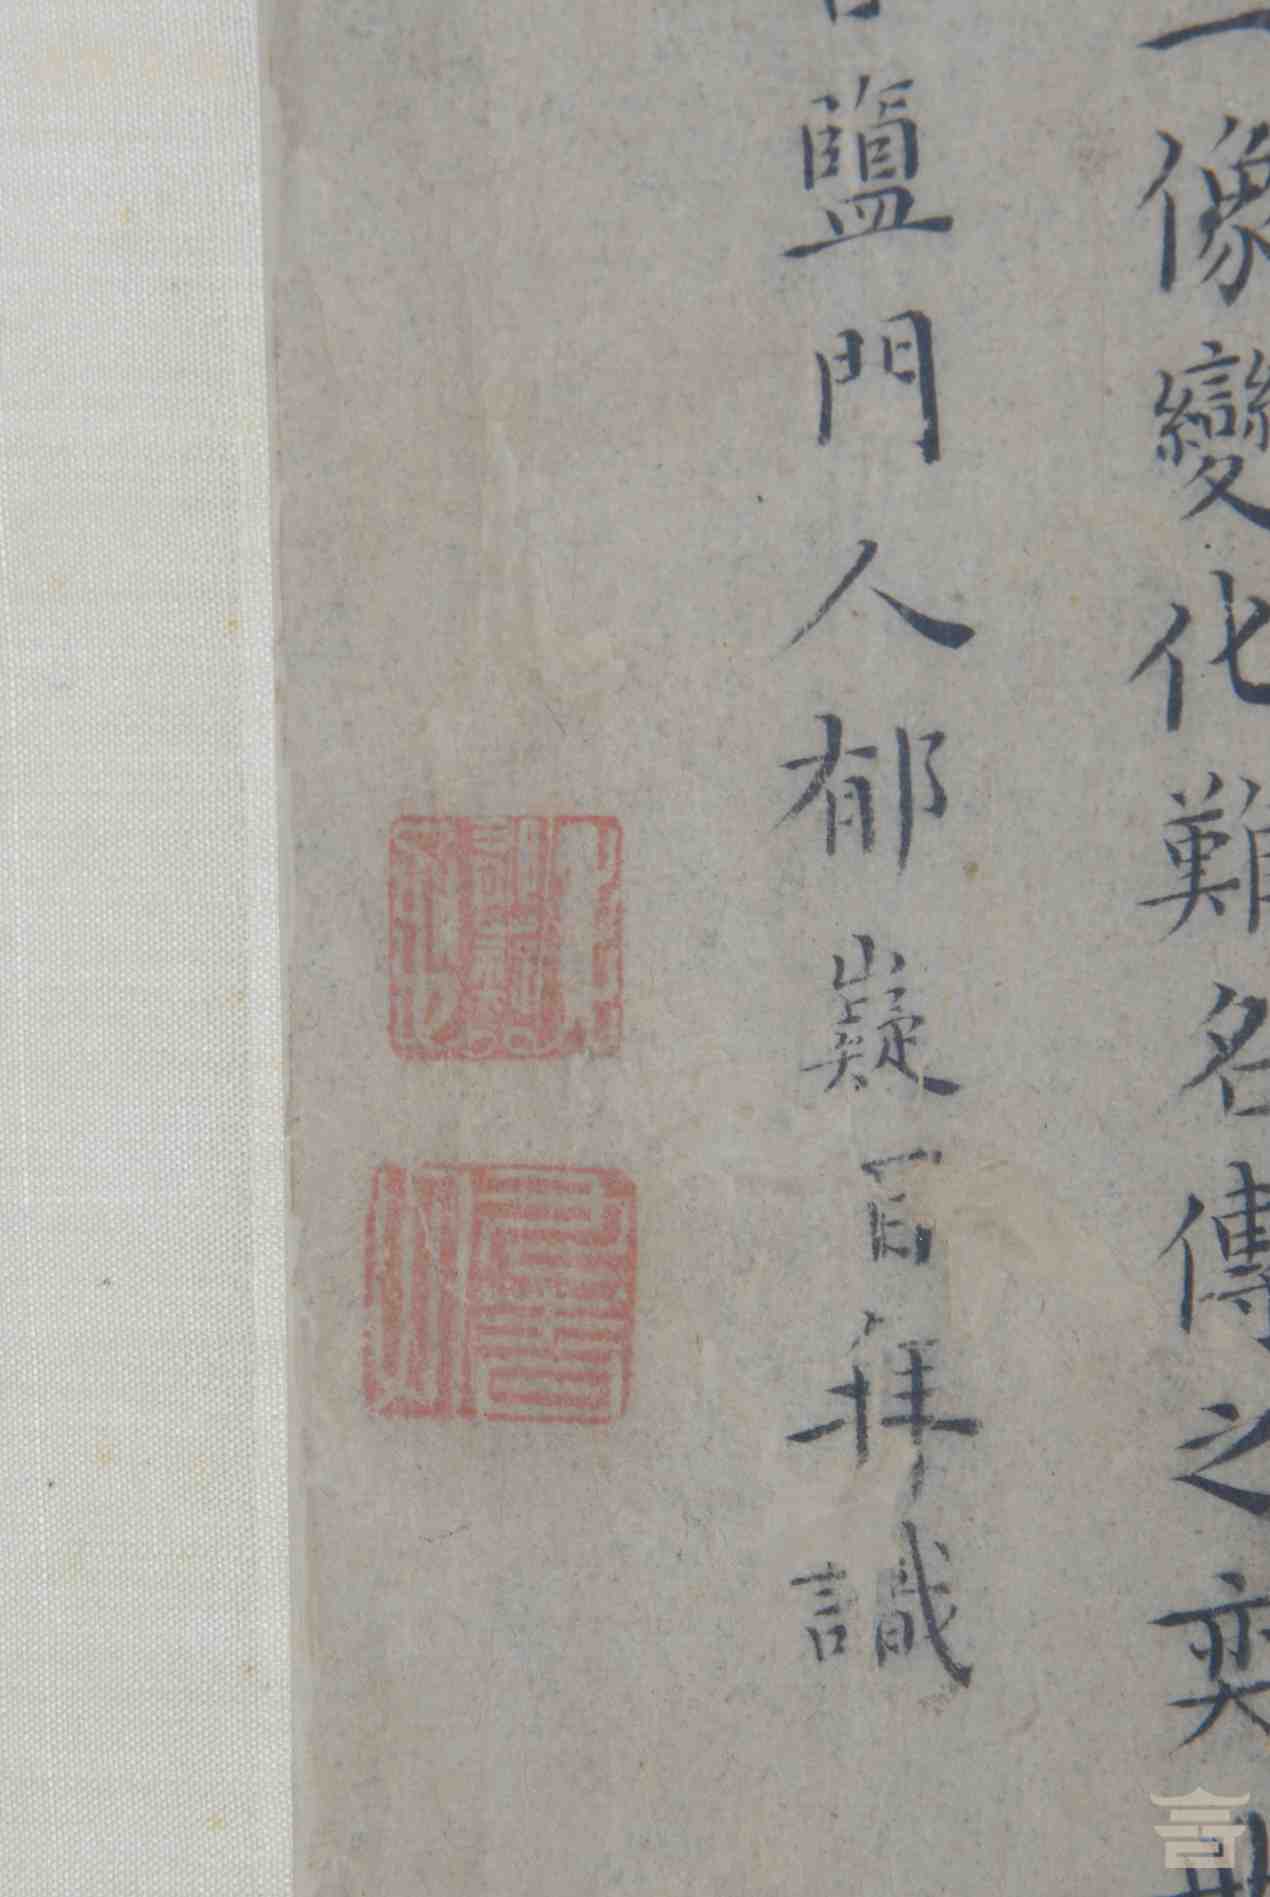 一像變化難名傳之奕
鹽門人郁嶷百拜識